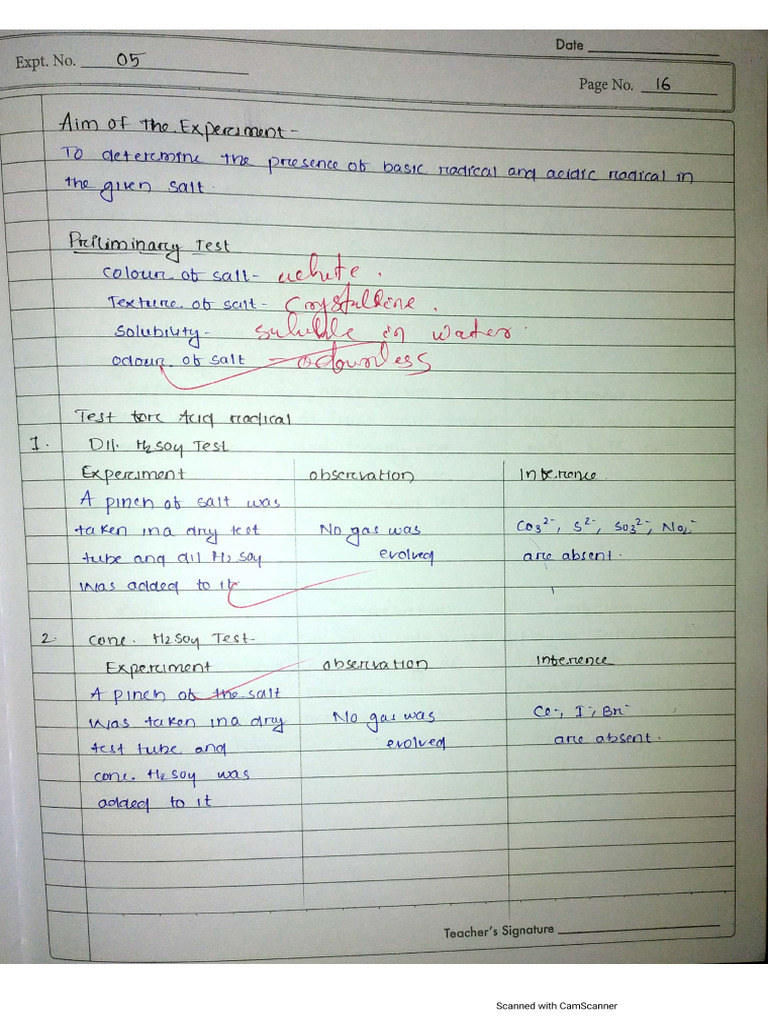 Date
Expt. No. 05
Page No. 16
Aim of the Experiment-
To determine the presence of basic radical and acidic radical in
the given salt.
Preliminary Test
Colour of salt- white.
Texture of salt- Crystalline.
Solubility- Soluble in water.
Odour of salt - odourless
Test for Acid radical
1. Dil. H2SO4 Test
Experiment Observation Inference
A pinch of salt was
taken in a dry test No gas was CO3²⁻, S²⁻, SO3²⁻, NO2⁻
tube and dil H2SO4 evolved are absent.
was added to it
2. Conc. H2SO4 Test-
Experiment Observation Inference
A pinch of the salt
was taken in a dry No gas was Cl⁻, I⁻, Br⁻
test tube and evolved are absent.
conc. H2SO4 was
added to it
Teacher's Signature
Scanned with CamScanner